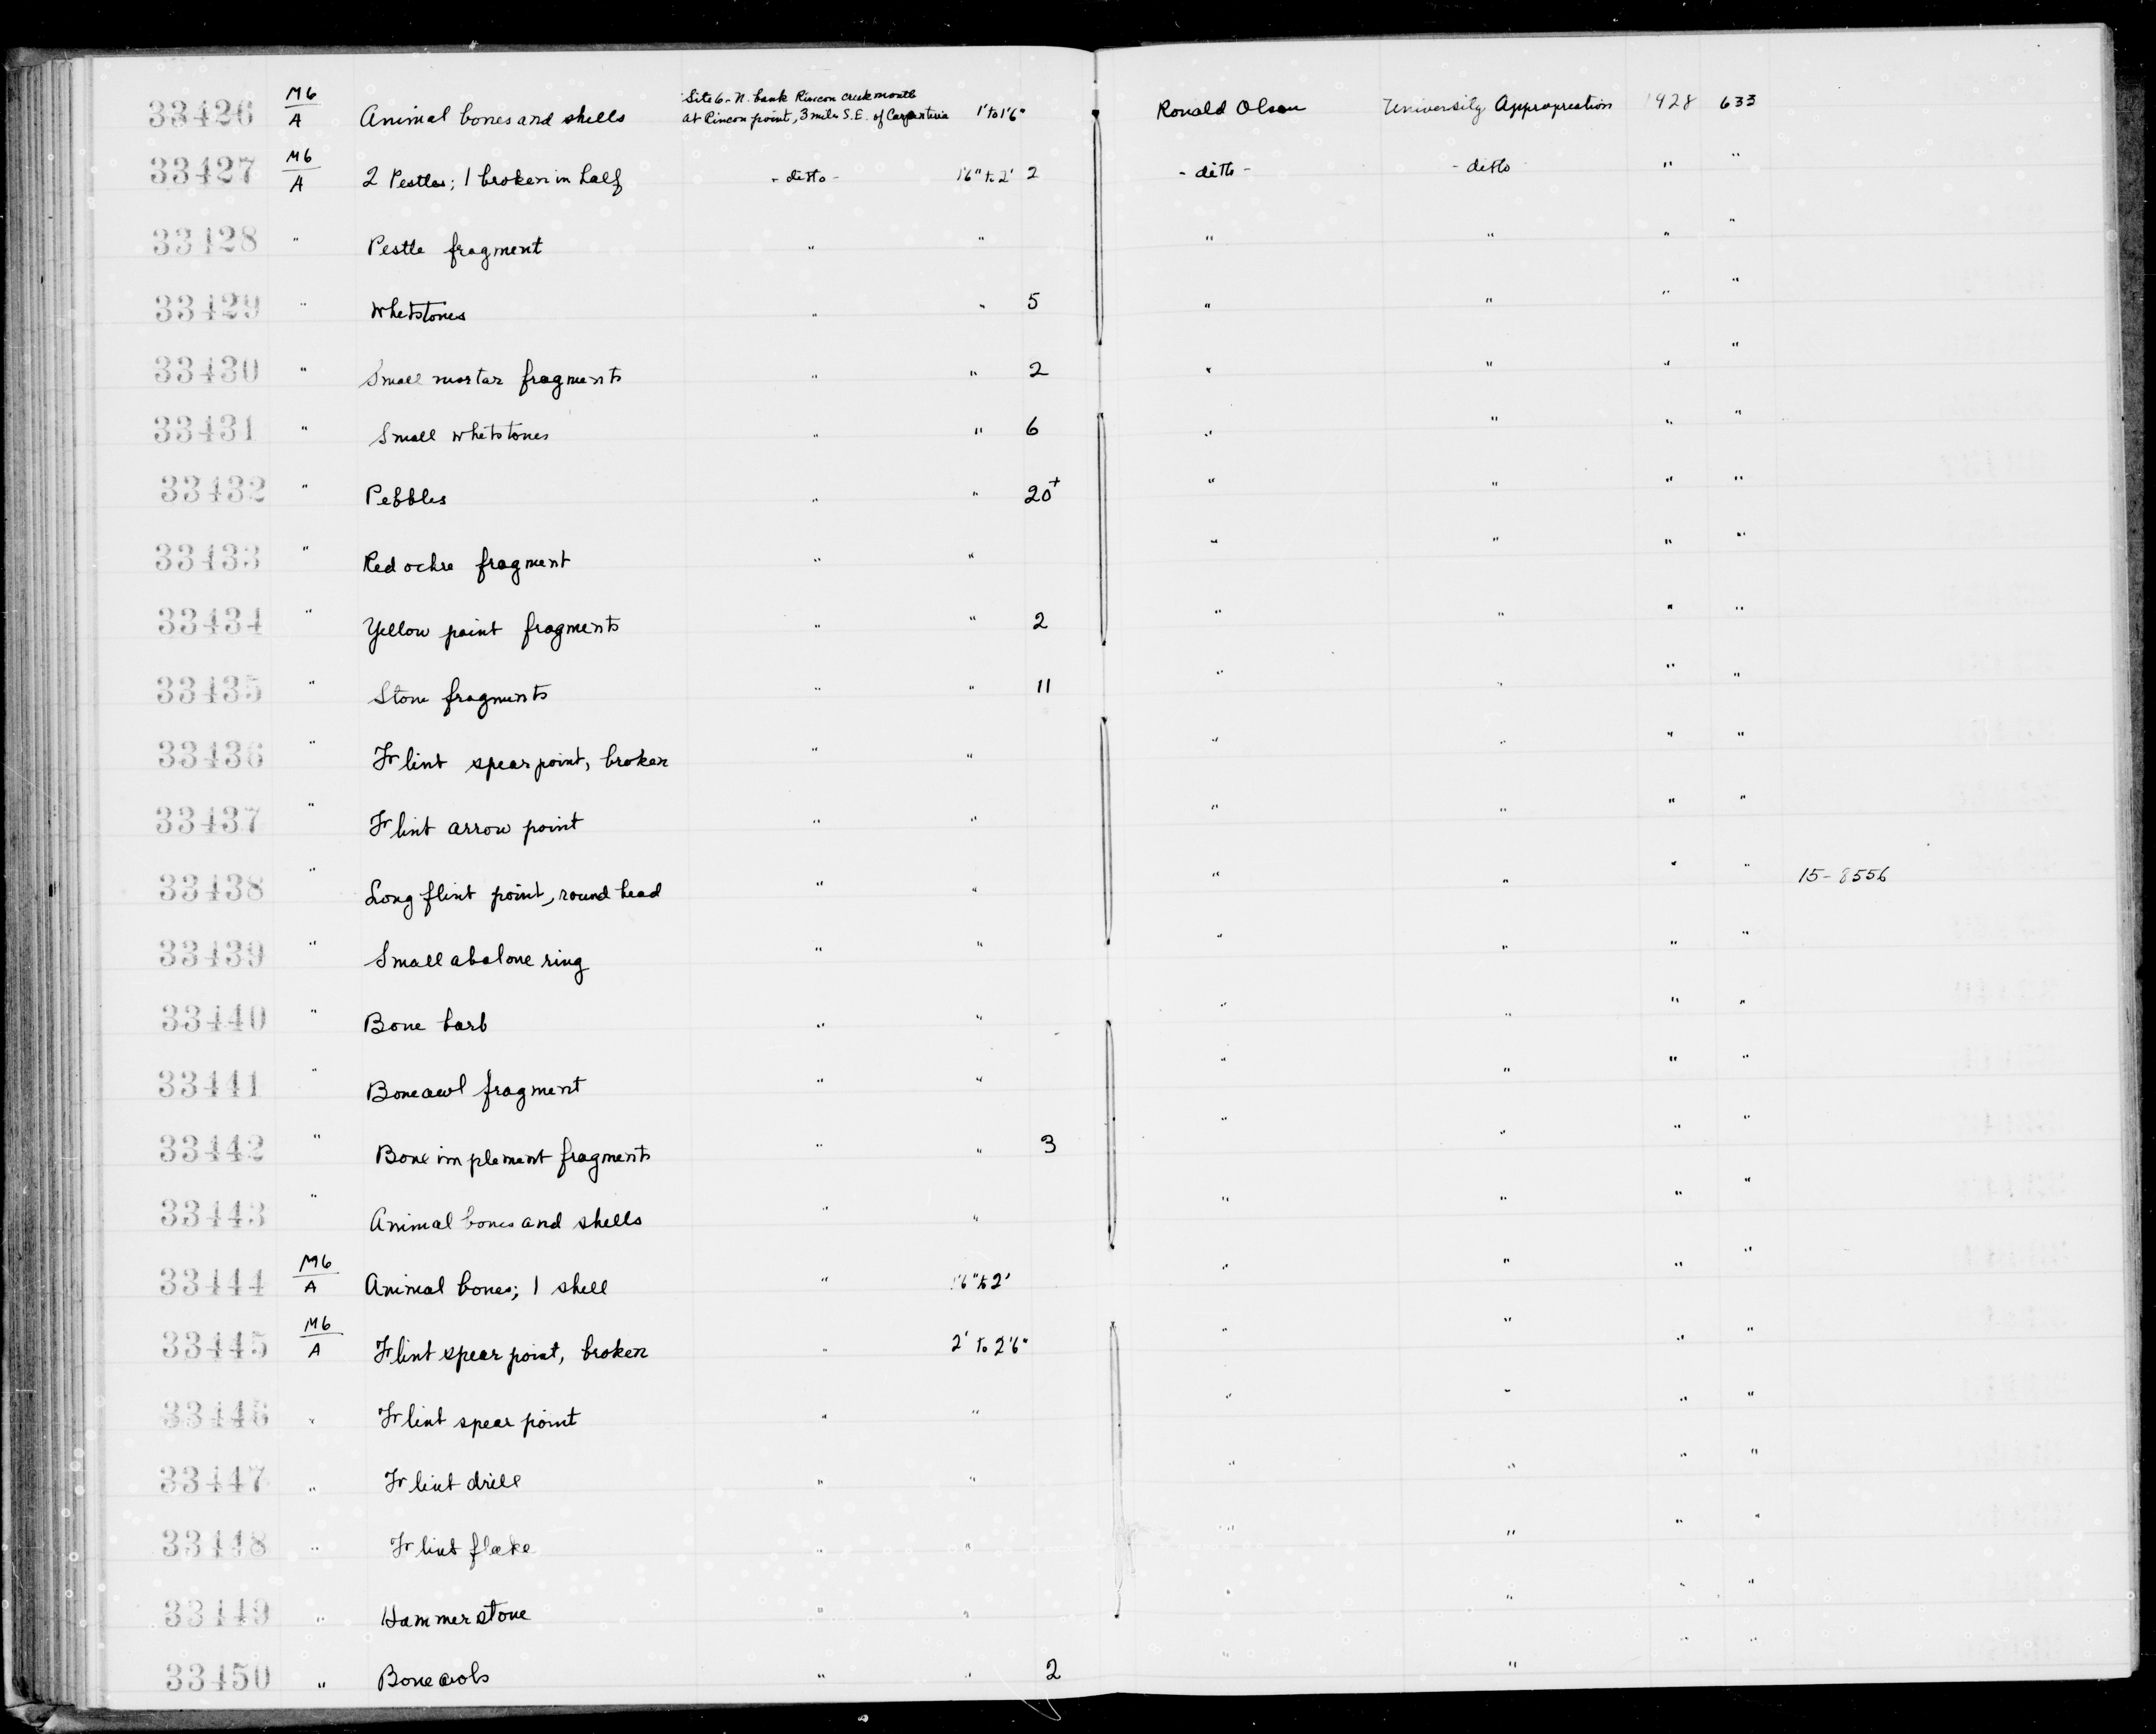 33426 M6/A Animal bones and shells Site 6 - N. bank Rincon Creek mouth at Rincon point, 3 miles S.E. of Carpenteria 1' to 1'6" Ronald Olson University Appropriation 1928 633
33427 M6/A 2 Pestles; 1 broken in half - ditto - 1'6" to 2' 2 - ditto - - ditto " "
33428 " Pestle fragment " " " " " "
33429 " Whetstones " " 5 " " " "
33430 " Small mortar fragments " " 2 " " " "
33431 " Small whetstones " " 6 " " " "
33432 " Pebbles " " 20+ " " " "
33433 " Red ochre fragment " " " " " "
33434 " Yellow paint fragments " " 2 " " " "
33435 " Stone fragments " " 11 " " " "
33436 " Flint spear point, broken " " " " " "
33437 " Flint arrow point " " " " " "
33438 " Long flint point, round head " " " " " " 15-8556
33439 " Small abalone ring " " " " " "
33440 " Bone barb " " " " " "
33441 " Bone awl fragment " " " " " "
33442 " Bone implement fragments " " 3 " " " "
33443 " Animal bones and shells " " " " " "
33444 M6/A Animal bones; 1 shell " 1'6" to 2' " " " "
33445 M6/A Flint spear point, broken " 2' to 2'6" " " " "
33446 " Flint spear point " " " " " "
33447 " Flint drill " " " " " "
33448 " Flint flake " " " " " "
33449 " Hammerstone " " " " " "
33450 " Bone awls " " 2 " " " "